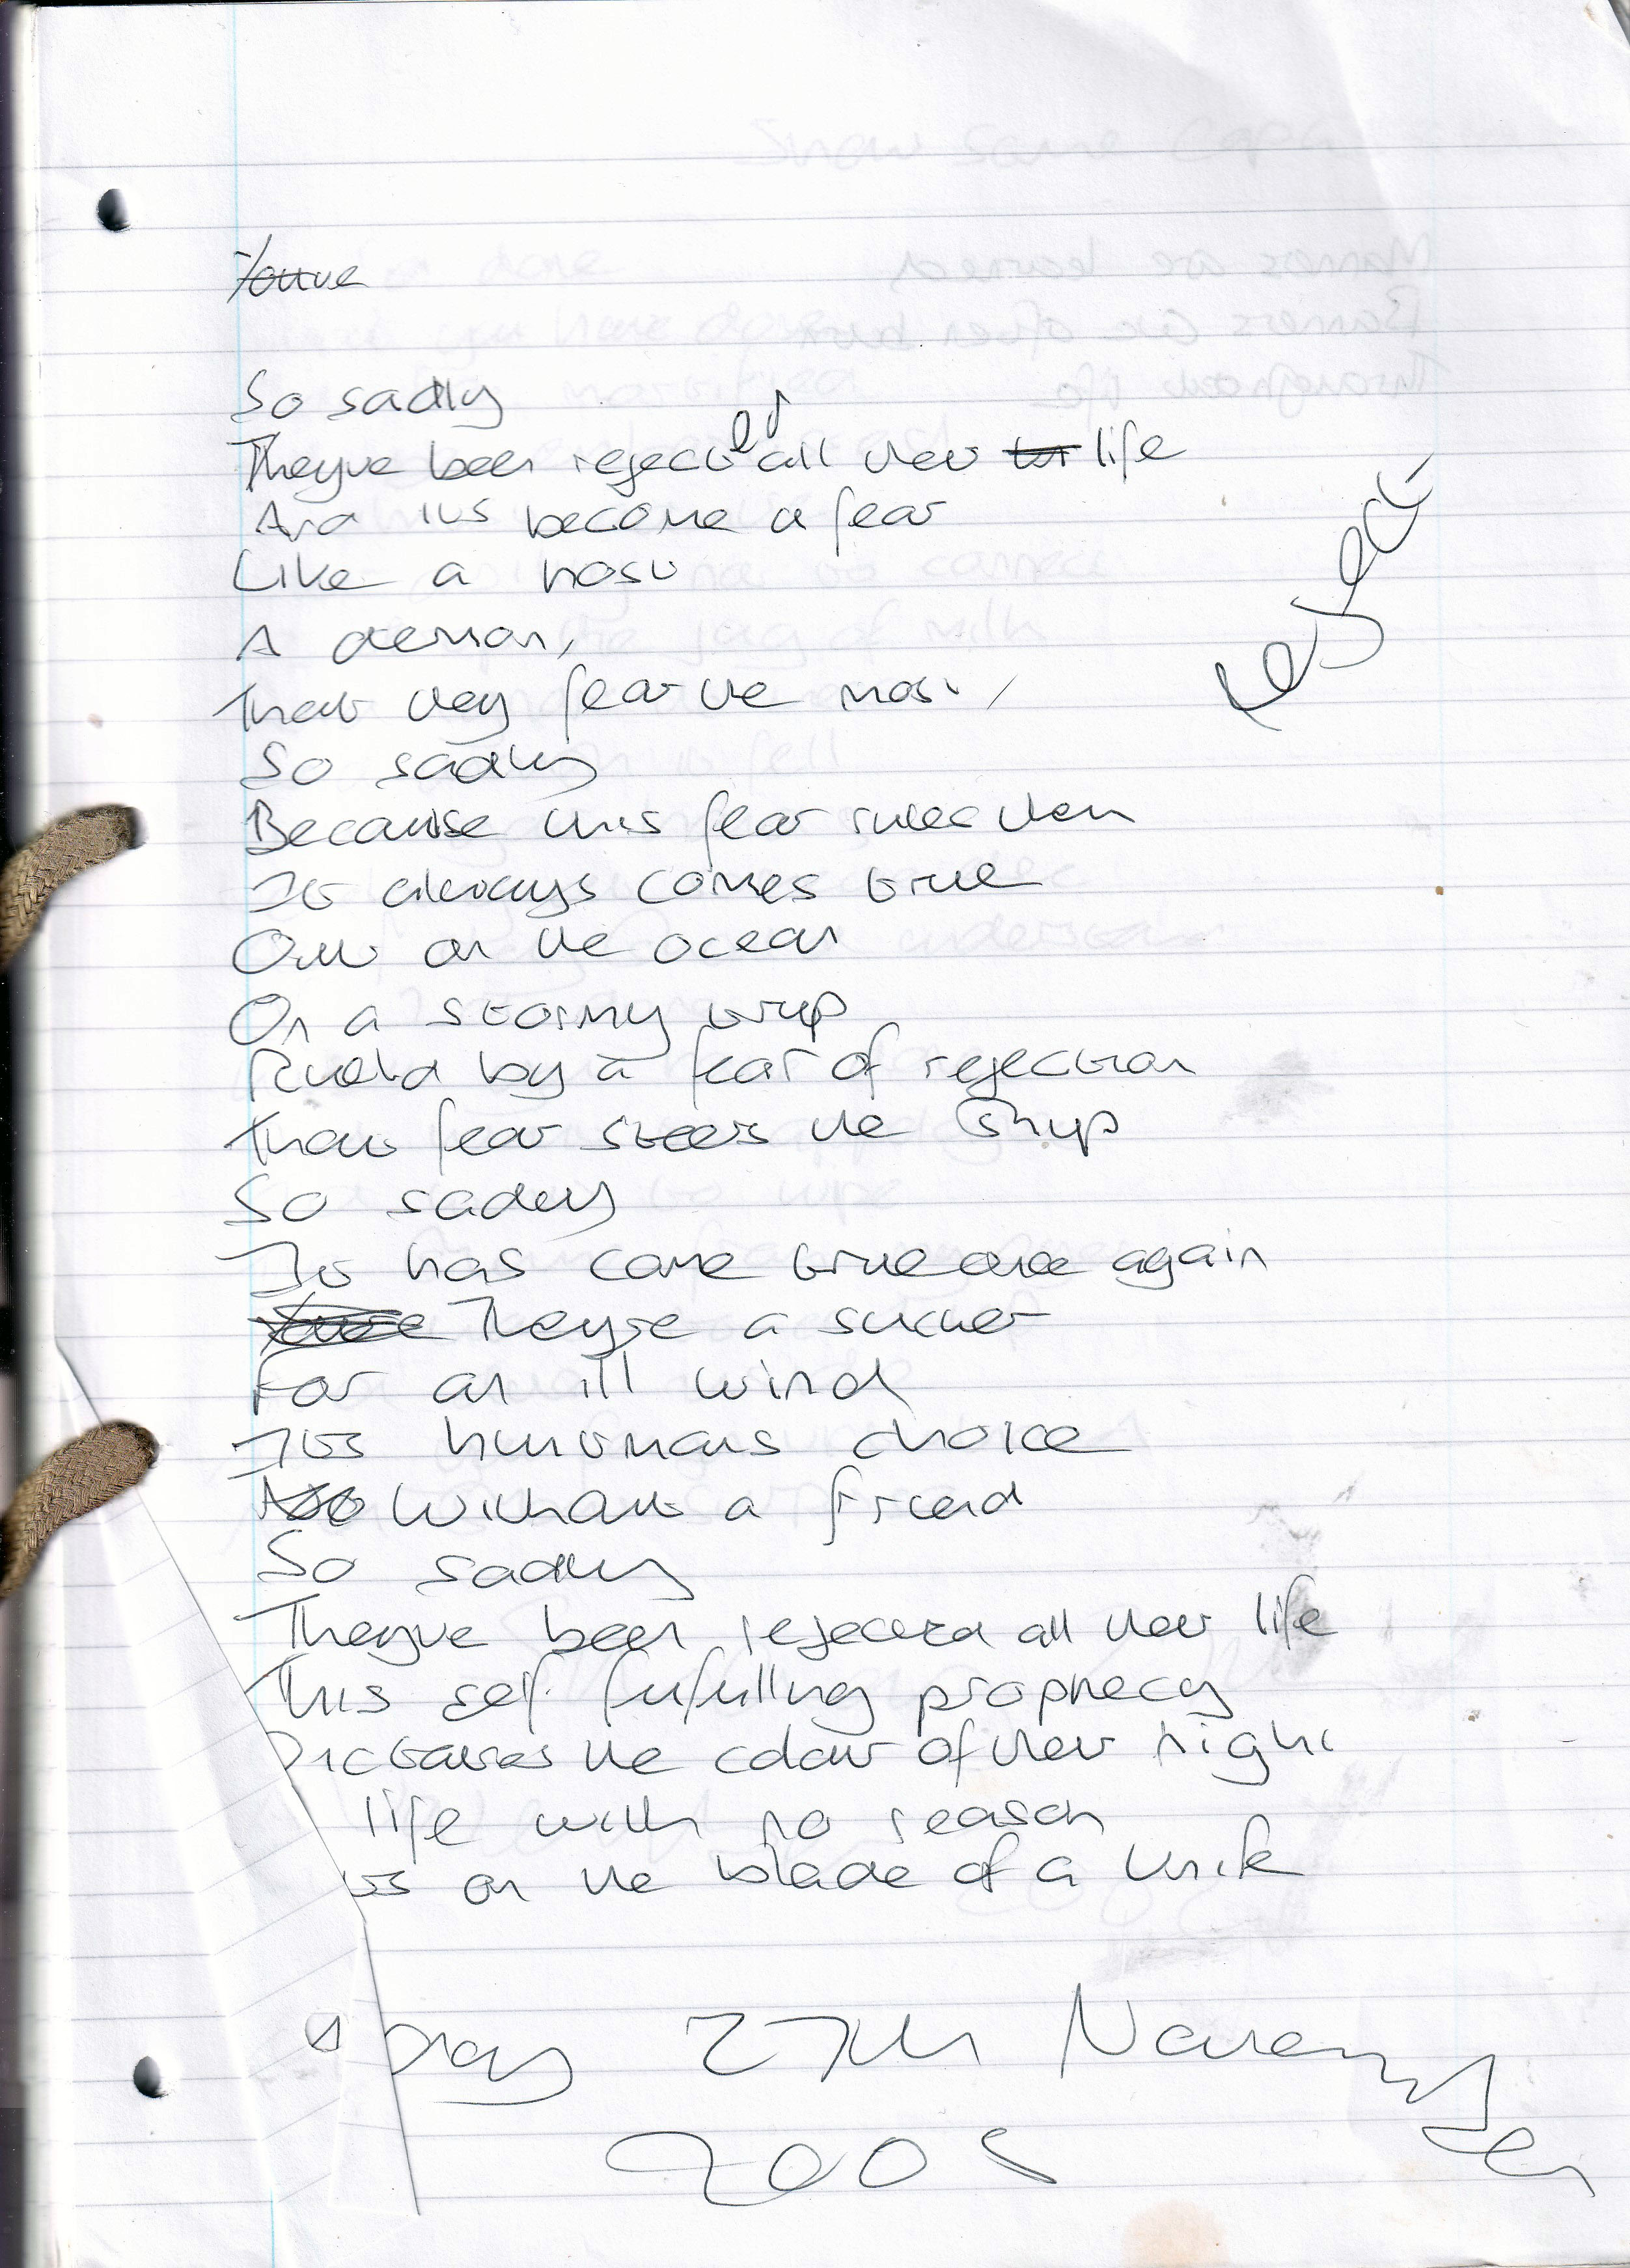 So sadly
Theyve been rejected all their life
And its become a fear
Like a host
A demon,
That they fear the most,
So sadly
Because this fear rules them
It always comes true
Out on the ocean
On a stormy trip
by a fear of rejection
That fear steers the Ship
So sadly
It has come true once again
Theyre a sucker
For an ill wind
Its choice
Without a friend
So sadly
Theyve been rejected all their life
This self fufulling prophecy
Dictates the colour of their night
life with no reason
on the blade of a knife
day 27th November
200